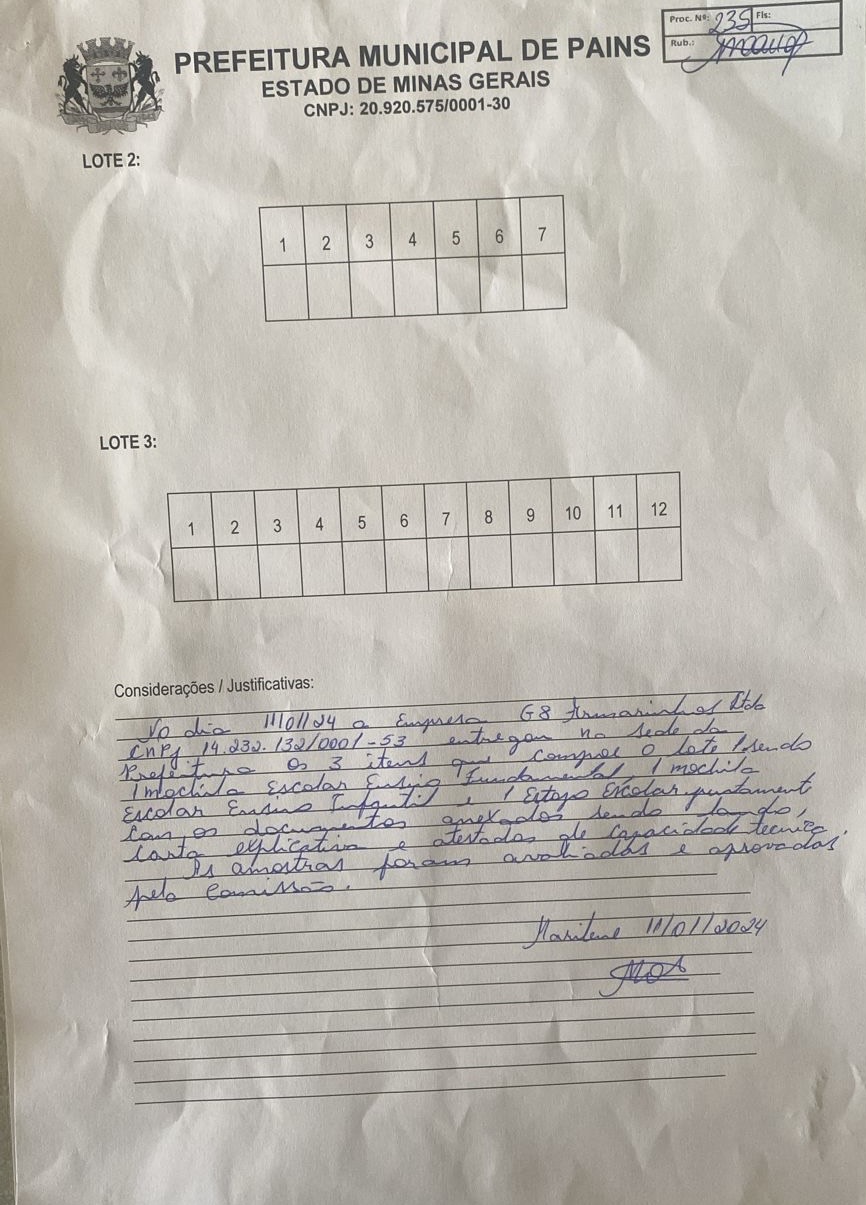 Proc. Nº: 235 Fls:
Rub.:
PREFEITURA MUNICIPAL DE PAINS
ESTADO DE MINAS GERAIS
CNPJ: 20.920.575/0001-30
LOTE 2:
1 2 3 4 5 6 7
LOTE 3:
1 2 3 4 5 6 7 8 9 10 11 12
Considerações / Justificativas:
No dia 11/01/24 a Empresa G8 Armarinhos Ltda
CNPJ 14.232.132/0001-53 entregou na sede da
Prefeitura os 3 itens que compoe o lote 1 sendo
1 mochila Escolar Ensino Fundamental, 1 mochila
Escolar Ensino Infantil e 1 Estojo Escolar juntamente
com os documentos anexados sendo laudo,
carta explicativa e atestados de capacidade tecnica.
As amostras foram avaliadas e aprovadas
pela Comissão.
Marilene 11/01/2024